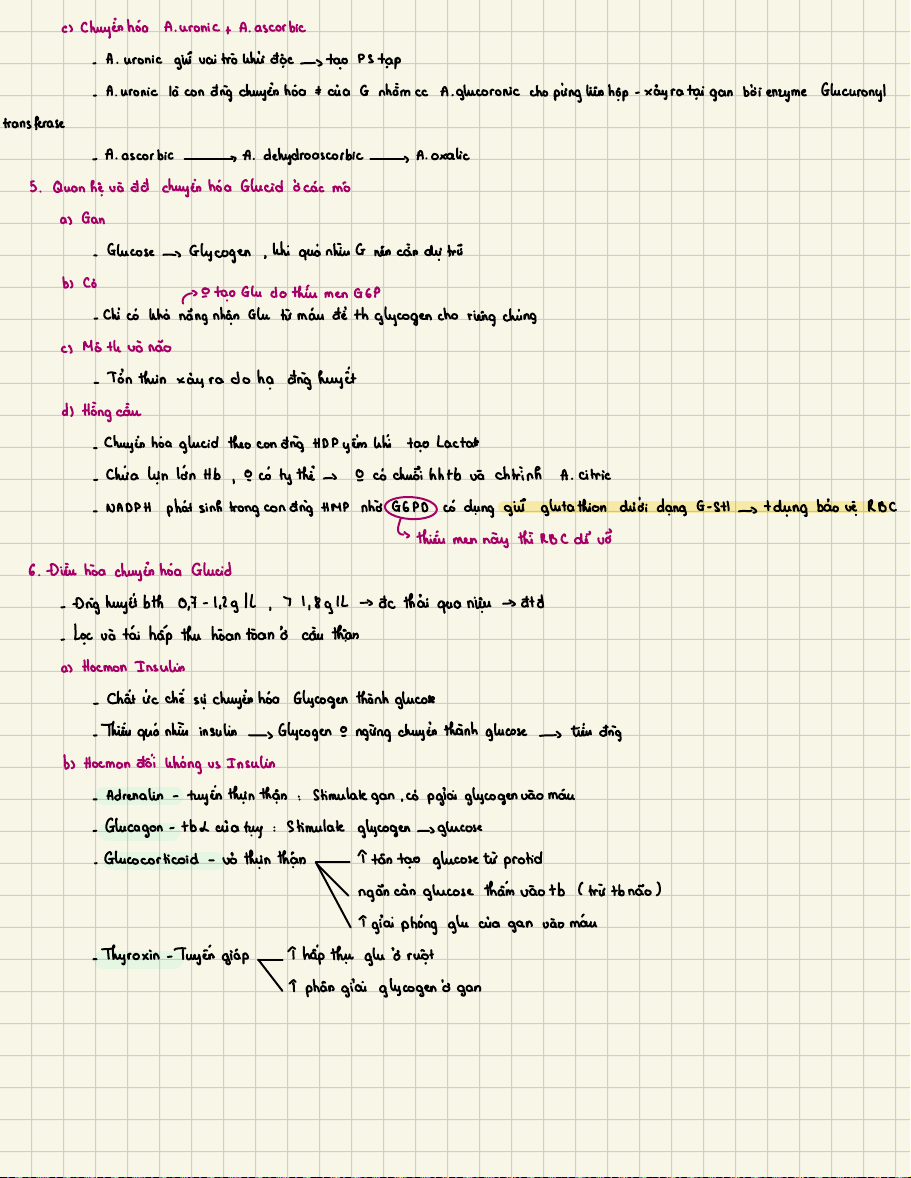 c) Chuyển hóa A.uronic + A.ascorbic
- A.uronic giữ vai trò khử độc → tạo PS tạp
- A.uronic là con đng chuyển hóa ≠ của G nhằm cc A.glucoronic cho pừng liên hợp - xảy ra tại gan bởi enzyme Glucuronyl
transferase
- A.ascorbic → A. dehydroascorbic → A.oxalic
5. Quan hệ và đđ chuyển hóa Glucid ở các mô
a) Gan
- Glucose → Glycogen , khi quá nhiều G nên cần dự trữ
b) Cơ
→ o tạo Glu do thiếu men G6P
- Chỉ có khả năng nhận Glu từ máu để th glycogen cho riêng chúng
c) Mô tk và não
- Tổn thưn xảy ra do hạ đng huyết
d) Hồng cầu
- Chuyển hóa glucid theo con đng HDP yếm khí tạo Lactat
- Chứa lựn lớn Hb , o có ty thể → o có chuỗi hhtb và chtrình A.citric
- NADPH phát sinh trong con đng HMP nhờ G6PD có dụng giữ glutathion dưới dạng G-SH → tdụng bảo vệ RBC
↳ thiếu men này thì RBC dễ vỡ
6. Điều hòa chuyển hóa Glucid
- Đng huyết bth 0,7 - 1,2g/L , > 1,8g/L → đc thải qua niệu → đtđ
- Lọc và tái hấp thu hòan tòan ở cầu thận
a) Hocmon Insulin
- Chất ức chế sự chuyển hóa Glycogen thành glucose
- Thiếu quá nhiều insulin → Glycogen o ngừng chuyển thành glucose → tiểu đng
b) Hocmon đối kháng vs Insulin
- Adrenalin - tuyến thựn thận : Stimulate gan, cơ pgiải glycogen vào máu
- Glucagon - tb α của tụy : Stimulate glycogen → glucose
- Glucocorticoid - vỏ thựn thận ↑ tân tạo glucose từ protid
ngăn cản glucose thấm vào tb (trừ tb não)
↑ giải phóng glu của gan vào máu
- Thyroxin - Tuyến giáp ↑ hấp thụ glu ở ruột
↑ phân giải glycogen ở gan